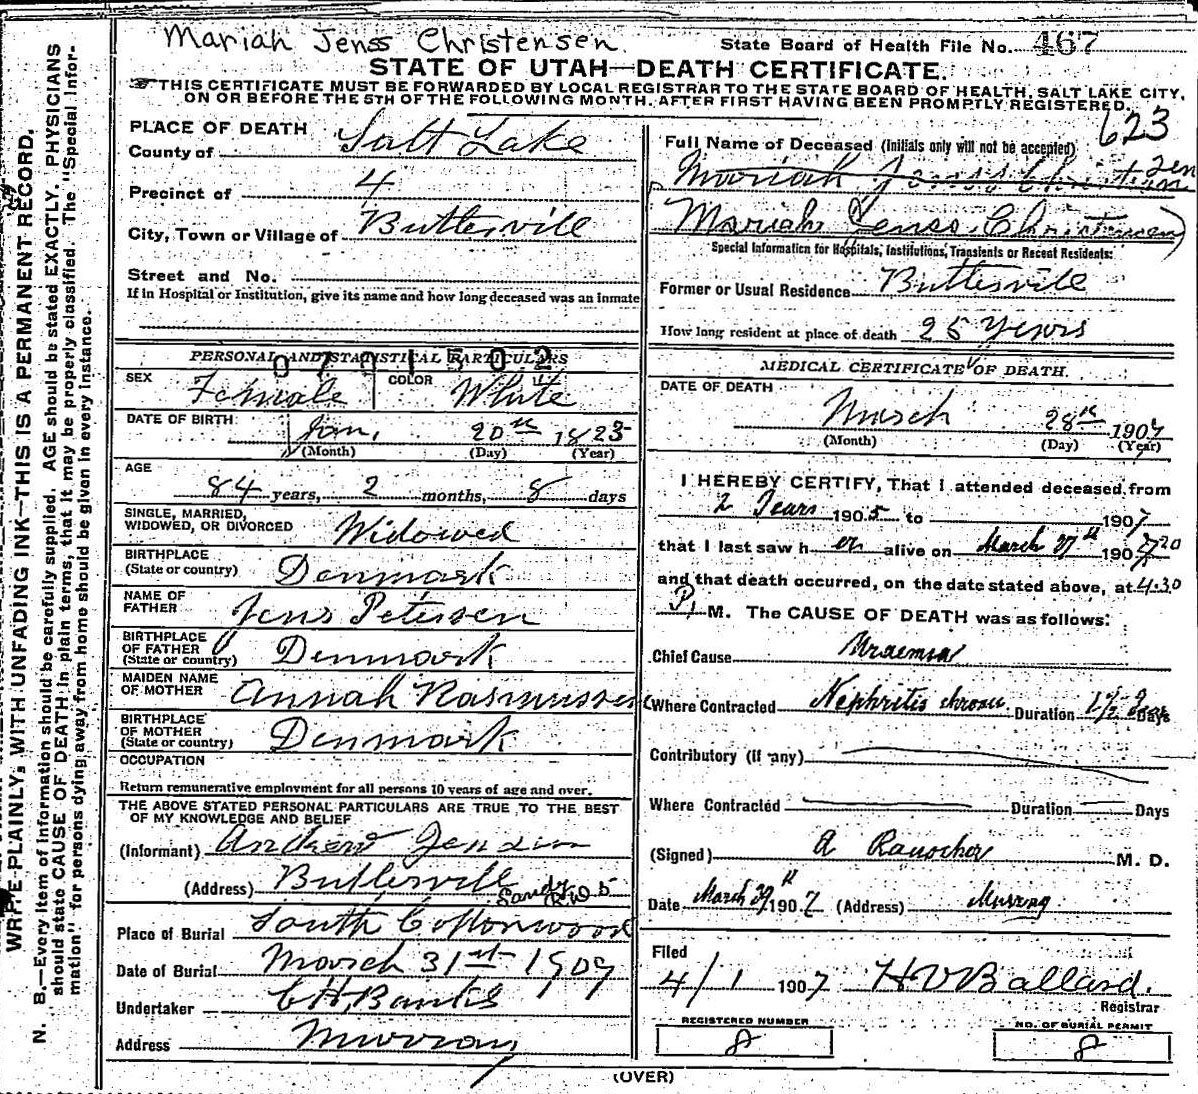 Mariah Jenss Christensen. State Board of Health File No. 467
STATE OF UTAH—DEATH CERTIFICATE.
THIS CERTIFICATE MUST BE FORWARDED BY LOCAL REGISTRAR TO THE STATE BOARD OF HEALTH, SALT LAKE CITY,
ON OR BEFORE THE 5TH OF THE FOLLOWING MONTH, AFTER FIRST HAVING BEEN PROMPTLY REGISTERED.
623
WRITE PLAINLY, WITH UNFADING INK—THIS IS A PERMANENT RECORD.
N. B.—Every item of information should be carefully supplied. AGE should be stated EXACTLY. PHYSICIANS
should state CAUSE OF DEATH in plain terms, that it may be properly classified. The "Special Infor-
mation" for persons dying away from home should be given in every instance.
PLACE OF DEATH
County of Salt Lake
Precinct of 4
City, Town or Village of Buttlerville
Street and No.
If in Hospital or Institution, give its name and how long deceased was an inmate
PERSONAL AND STATISTICAL PARTICULARS
0701502
SEX Female COLOR White
DATE OF BIRTH Jan. 20th 1823
(Month) (Day) (Year)
AGE
84 years, 2 months, 8 days
SINGLE, MARRIED,
WIDOWED, OR DIVORCED Widowed
BIRTHPLACE
(State or country) Denmark
NAME OF
FATHER Jens Petersen
BIRTHPLACE
OF FATHER
(State or country) Denmark
MAIDEN NAME
OF MOTHER Annah Rasmussen
BIRTHPLACE
OF MOTHER
(State or country) Denmark
OCCUPATION
Return remunerative employment for all persons 10 years of age and over.
THE ABOVE STATED PERSONAL PARTICULARS ARE TRUE TO THE BEST
OF MY KNOWLEDGE AND BELIEF
(Informant) Andrew Jensen
(Address) Buttlerville Sandy
Place of Burial South Cottonwood
Date of Burial March 31st 1907
Undertaker
Address Murray
Full Name of Deceased (Initials only will not be accepted)
Mariah Jenss Christianzen
Mariah Jenss Christensen)
Special Information for Hospitals, Institutions, Transients or Recent Residents:
Former or Usual Residence Buttlerville
How long resident at place of death 25 Years
MEDICAL CERTIFICATE OF DEATH.
DATE OF DEATH
March 28th 1907
(Month) (Day) (Year)
I HEREBY CERTIFY, That I attended deceased from
2 Years 1905 to 1907
that I last saw her alive on March 27th 1907
and that death occurred, on the date stated above, at 4.30
P. M. The CAUSE OF DEATH was as follows:
Chief Cause Uraemia
Where Contracted Nephritis chronic Duration 1½ Days
Contributory (if any)
Where Contracted Duration Days
(Signed) M. D.
Date March 1907 (Address) Murray
Filed
4/1 1907 H V Ballard.
Registrar
REGISTERED NUMBER NO. OF BURIAL PERMIT
8 8
(OVER)